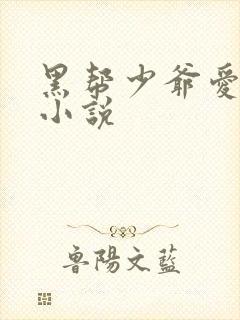 黑帮少爷愛
小説
鲁陽文藍